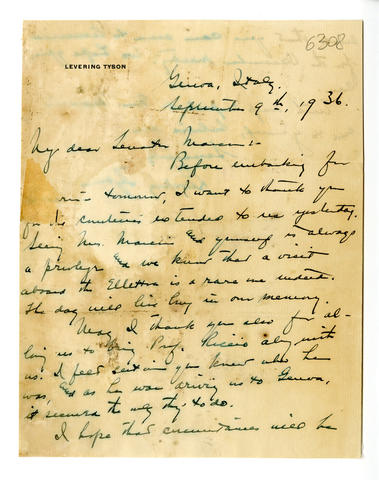 6308
LEVERING TYSON
Genoa, Italy.
September 9th, 1936.
My dear Senator Marconi:-
Before embarking for
tomorrow, I want to thank you
for the courtesies extended to us yesterday.
Seeing Mrs. Marconi and yourself is always
a privilege and we know that a visit
aboard the Elettra is a rare one indeed.
The day will live long in our memory.
May I thank you also for al-
lowing us to bring Prof. Riccio along with
us. I feel certain you knew who he
was, and as he was driving us to Genoa,
it seemed the only thing to do.
I hope that circumstances will be